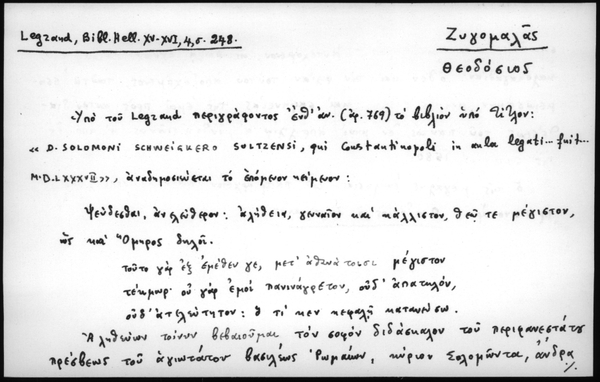 Legrand, Bibl. Hell. XV-XVI, 4, σ. 248.
Ζυγομαλᾶς
Θεοδόσιος
Ὑπὸ τοῦ Legrand περιγράφοντος ἐνθ' ἀν. (ἀρ. 769) τὸ βιβλίον ὑπὸ τίτλον:
« D. SOLOMONI SCHWEIGKERO SULTZENSI, qui Constantinopoli in aula legati... fuit...
M.D.LXXXVII», ἀναδημοσιεύεται τὸ ἑπόμενον κείμενον:
Ψεύδεσθαι, ἀνελεύθερον: ἀλήθεια, γενναῖον καὶ κάλλιστον, θεῷ τε μέγιστον,
ὡς καὶ Ὅμηρος δηλοῖ.
τοῦτο γὰρ ἐξ ἐμέθεν γε, μετ' ἀθανάτοισι μέγιστον
τέκμωρ· οὐ γὰρ ἐμοὶ παλινάγρετον, οὐδ' ἀπατηλόν,
οὐδ' ἀτελεύτητον: ὅ τί κεν κεφαλῇ κατανεύσω.
Ἀληθεύων τοίνυν βεβαιοῦμαι τὸν σοφὸν διδάσκαλον τοῦ περιφανεστάτου
πρέσβεως τοῦ ἁγιωτάτου βασιλέως Ῥωμαίων, κύριον Σολομῶντα, ἄνδρα
%